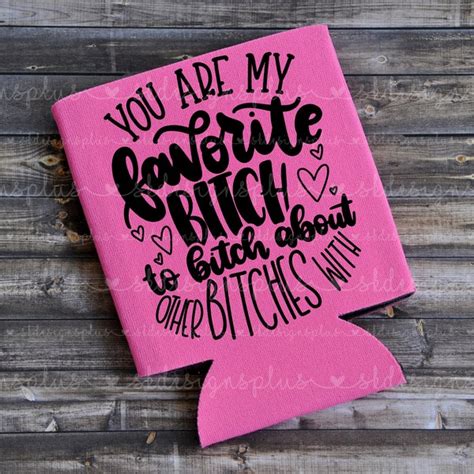 YOU ARE MY
favorite
BITCH
to bitch about
OTHER BITCHES WITH
skdesignsplus
skdesignsplus